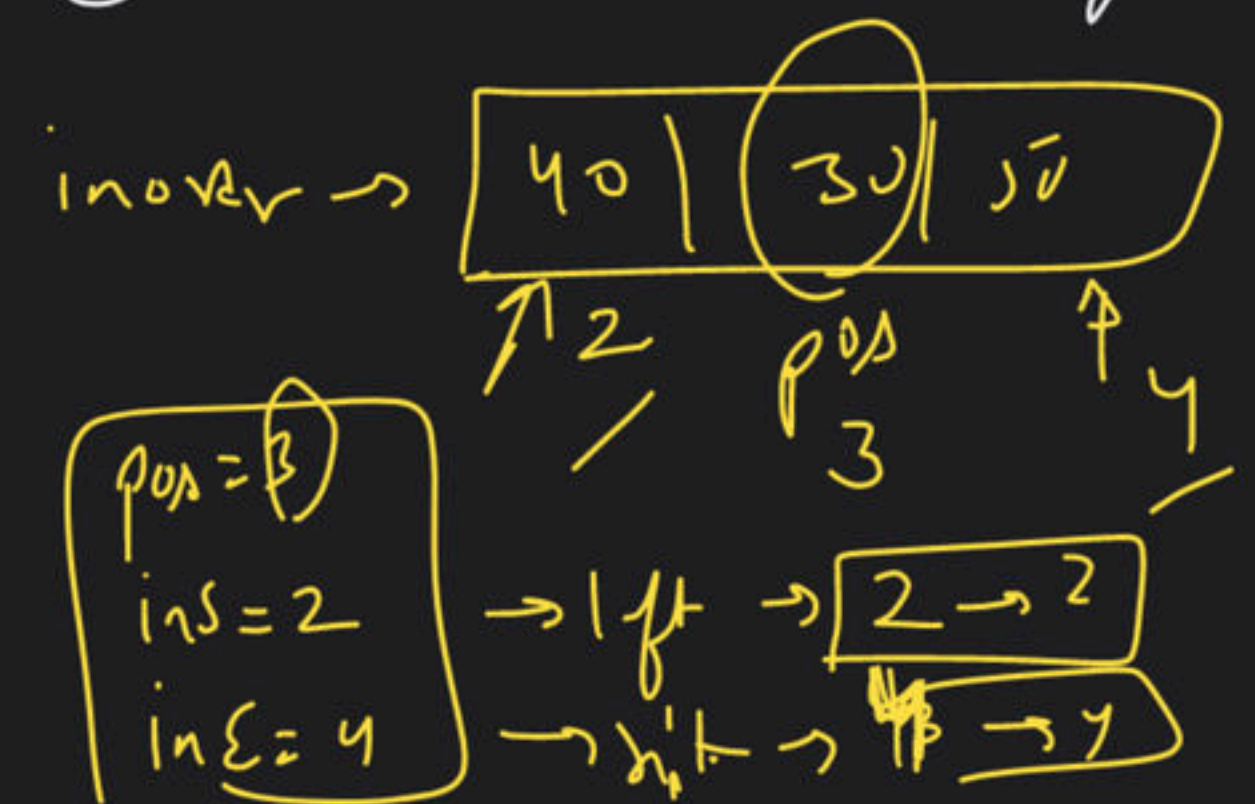 inorder → 40 | 30 | 50
2 pos 4
3
pos = 3
inS = 2 → left → 2 → 2
inE = 4 → right → → 4